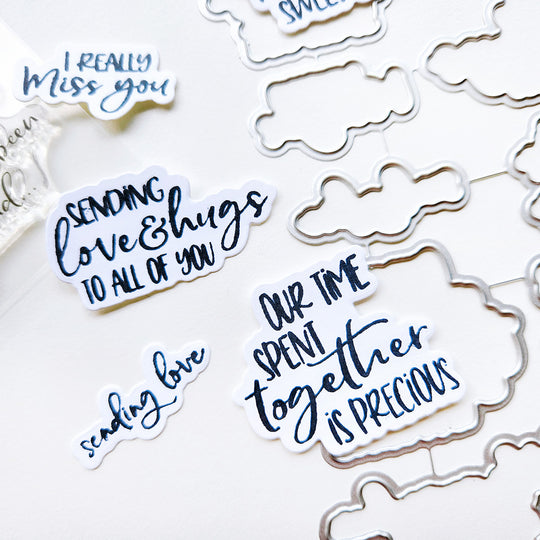 SWEET
I REALLY
Miss you
SENDING
love & hugs
TO ALL OF YOU
OUR TIME
SPENT
together
IS PRECIOUS
sending love